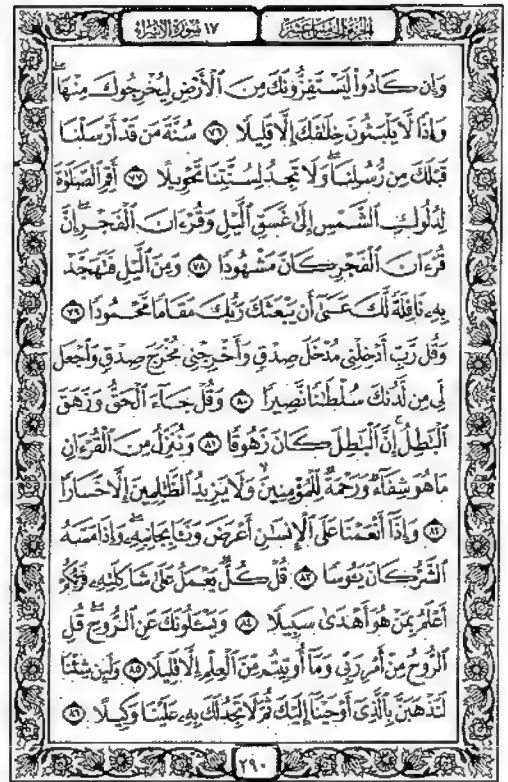 الجزء الخامس عشر
١٧ سورة الإسراء
وَإِن كَادُوا۟ لَيَسْتَفِزُّونَكَ مِنَ ٱلْأَرْضِ لِيُخْرِجُوكَ مِنْهَا ۖ
وَإِذًا لَّا يَلْبَثُونَ خِلَٰفَكَ إِلَّا قَلِيلًا ٧٦ سُنَّةَ مَن قَدْ أَرْسَلْنَا
قَبْلَكَ مِن رُّسُلِنَا ۖ وَلَا تَجِدُ لِسُنَّتِنَا تَحْوِيلًا ٧٧ أَقِمِ ٱلصَّلَوٰةَ
لِدُلُوكِ ٱلشَّمْسِ إِلَىٰ غَسَقِ ٱلَّيْلِ وَقُرْءَانَ ٱلْفَجْرِ ۖ إِنَّ
قُرْءَانَ ٱلْفَجْرِ كَانَ مَشْهُودًا ٧٨ وَمِنَ ٱلَّيْلِ فَتَهَجَّدْ
بِهِۦ نَافِلَةً لَّكَ عَسَىٰٓ أَن يَبْعَثَكَ رَبُّكَ مَقَامًا مَّحْمُودًا ٧٩
وَقُل رَّبِّ أَدْخِلْنِى مُدْخَلَ صِدْقٍ وَأَخْرِجْنِى مُخْرَجَ صِدْقٍ وَٱجْعَل
لِّى مِن لَّدُنكَ سُلْطَٰنًا نَّصِيرًا ٨٠ وَقُلْ جَآءَ ٱلْحَقُّ وَزَهَقَ
ٱلْبَٰطِلُ ۚ إِنَّ ٱلْبَٰطِلَ كَانَ زَهُوقًا ٨١ وَنُنَزِّلُ مِنَ ٱلْقُرْءَانِ
مَا هُوَ شِفَآءٌ وَرَحْمَةٌ لِّلْمُؤْمِنِينَ ۙ وَلَا يَزِيدُ ٱلظَّٰلِمِينَ إِلَّا خَسَارًا
٨٢ وَإِذَآ أَنْعَمْنَا عَلَى ٱلْإِنسَٰنِ أَعْرَضَ وَنَـَٔا بِجَانِبِهِۦ ۖ وَإِذَا مَسَّهُ
ٱلشَّرُّ كَانَ يَـُٔوسًا ٨٣ قُلْ كُلٌّ يَعْمَلُ عَلَىٰ شَاكِلَتِهِۦ فَرَبُّكُمْ
أَعْلَمُ بِمَنْ هُوَ أَهْدَىٰ سَبِيلًا ٨٤ وَيَسْـَٔلُونَكَ عَنِ ٱلرُّوحِ ۖ قُلِ
ٱلرُّوحُ مِنْ أَمْرِ رَبِّى وَمَآ أُوتِيتُم مِّنَ ٱلْعِلْمِ إِلَّا قَلِيلًا ٨٥ وَلَئِن شِئْنَا
لَنَذْهَبَنَّ بِٱلَّذِىٓ أَوْحَيْنَآ إِلَيْكَ ثُمَّ لَا تَجِدُ لَكَ بِهِۦ عَلَيْنَا وَكِيلًا ٨٦
٢٩٠